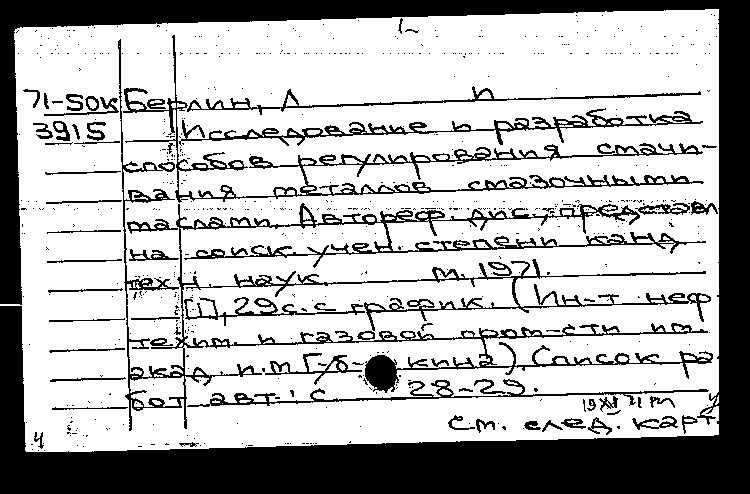 71-50к Берлин, Л П
3915 Исследование и разработка
способов регулирования смачи-
вания металлов смазочными
маслами. Автореф. дис., представл
на соиск. учен. степени канд
техн. наук. М., 1971.
[1], 29 с. с график. (Ин-т неф-
техим. и газовой пром-сти им.
акад. И.М Г-б- кина). Список ра-
бот авт.: с 28-29.
19 XI 71 м
См. след. карт.
ч